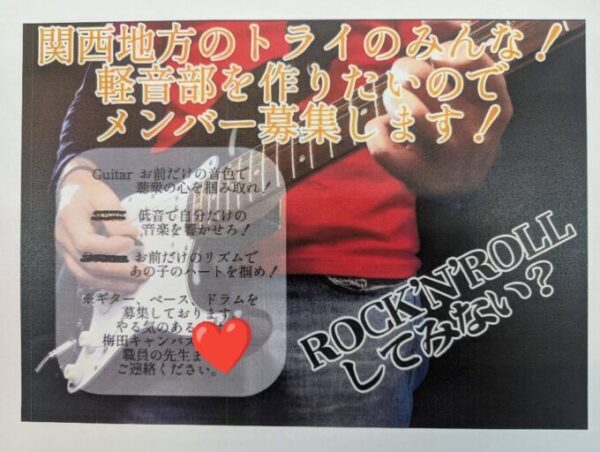 関西地方のトライのみんな!
軽音部を作りたいので
メンバー募集します!
Guitar お前だけの音色で
聴衆の心を掴み取れ!
低音で自分だけの
音楽を響かせろ!
お前だけのリズムで
あの子のハートを掴め!
※ギター、ベース、ドラムを
募集しております
やる気のある
梅田キャンパス
職員の先生ま
ご連絡ください。
ROCK'N'ROLL
してみない?